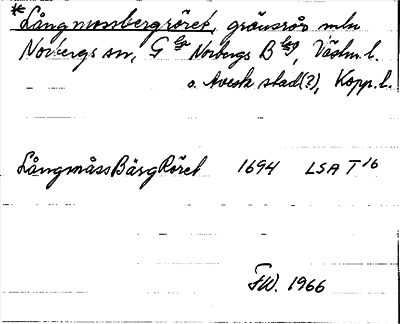 * Långmossbergröret, gränsrör mln
Norbergs sn, G la Norbergs B lag, Västm. l.
o. Avesta stad(?), Kopp. l.
LångmåssBärgRöret 1694 LSA T 16
F.W. 1966